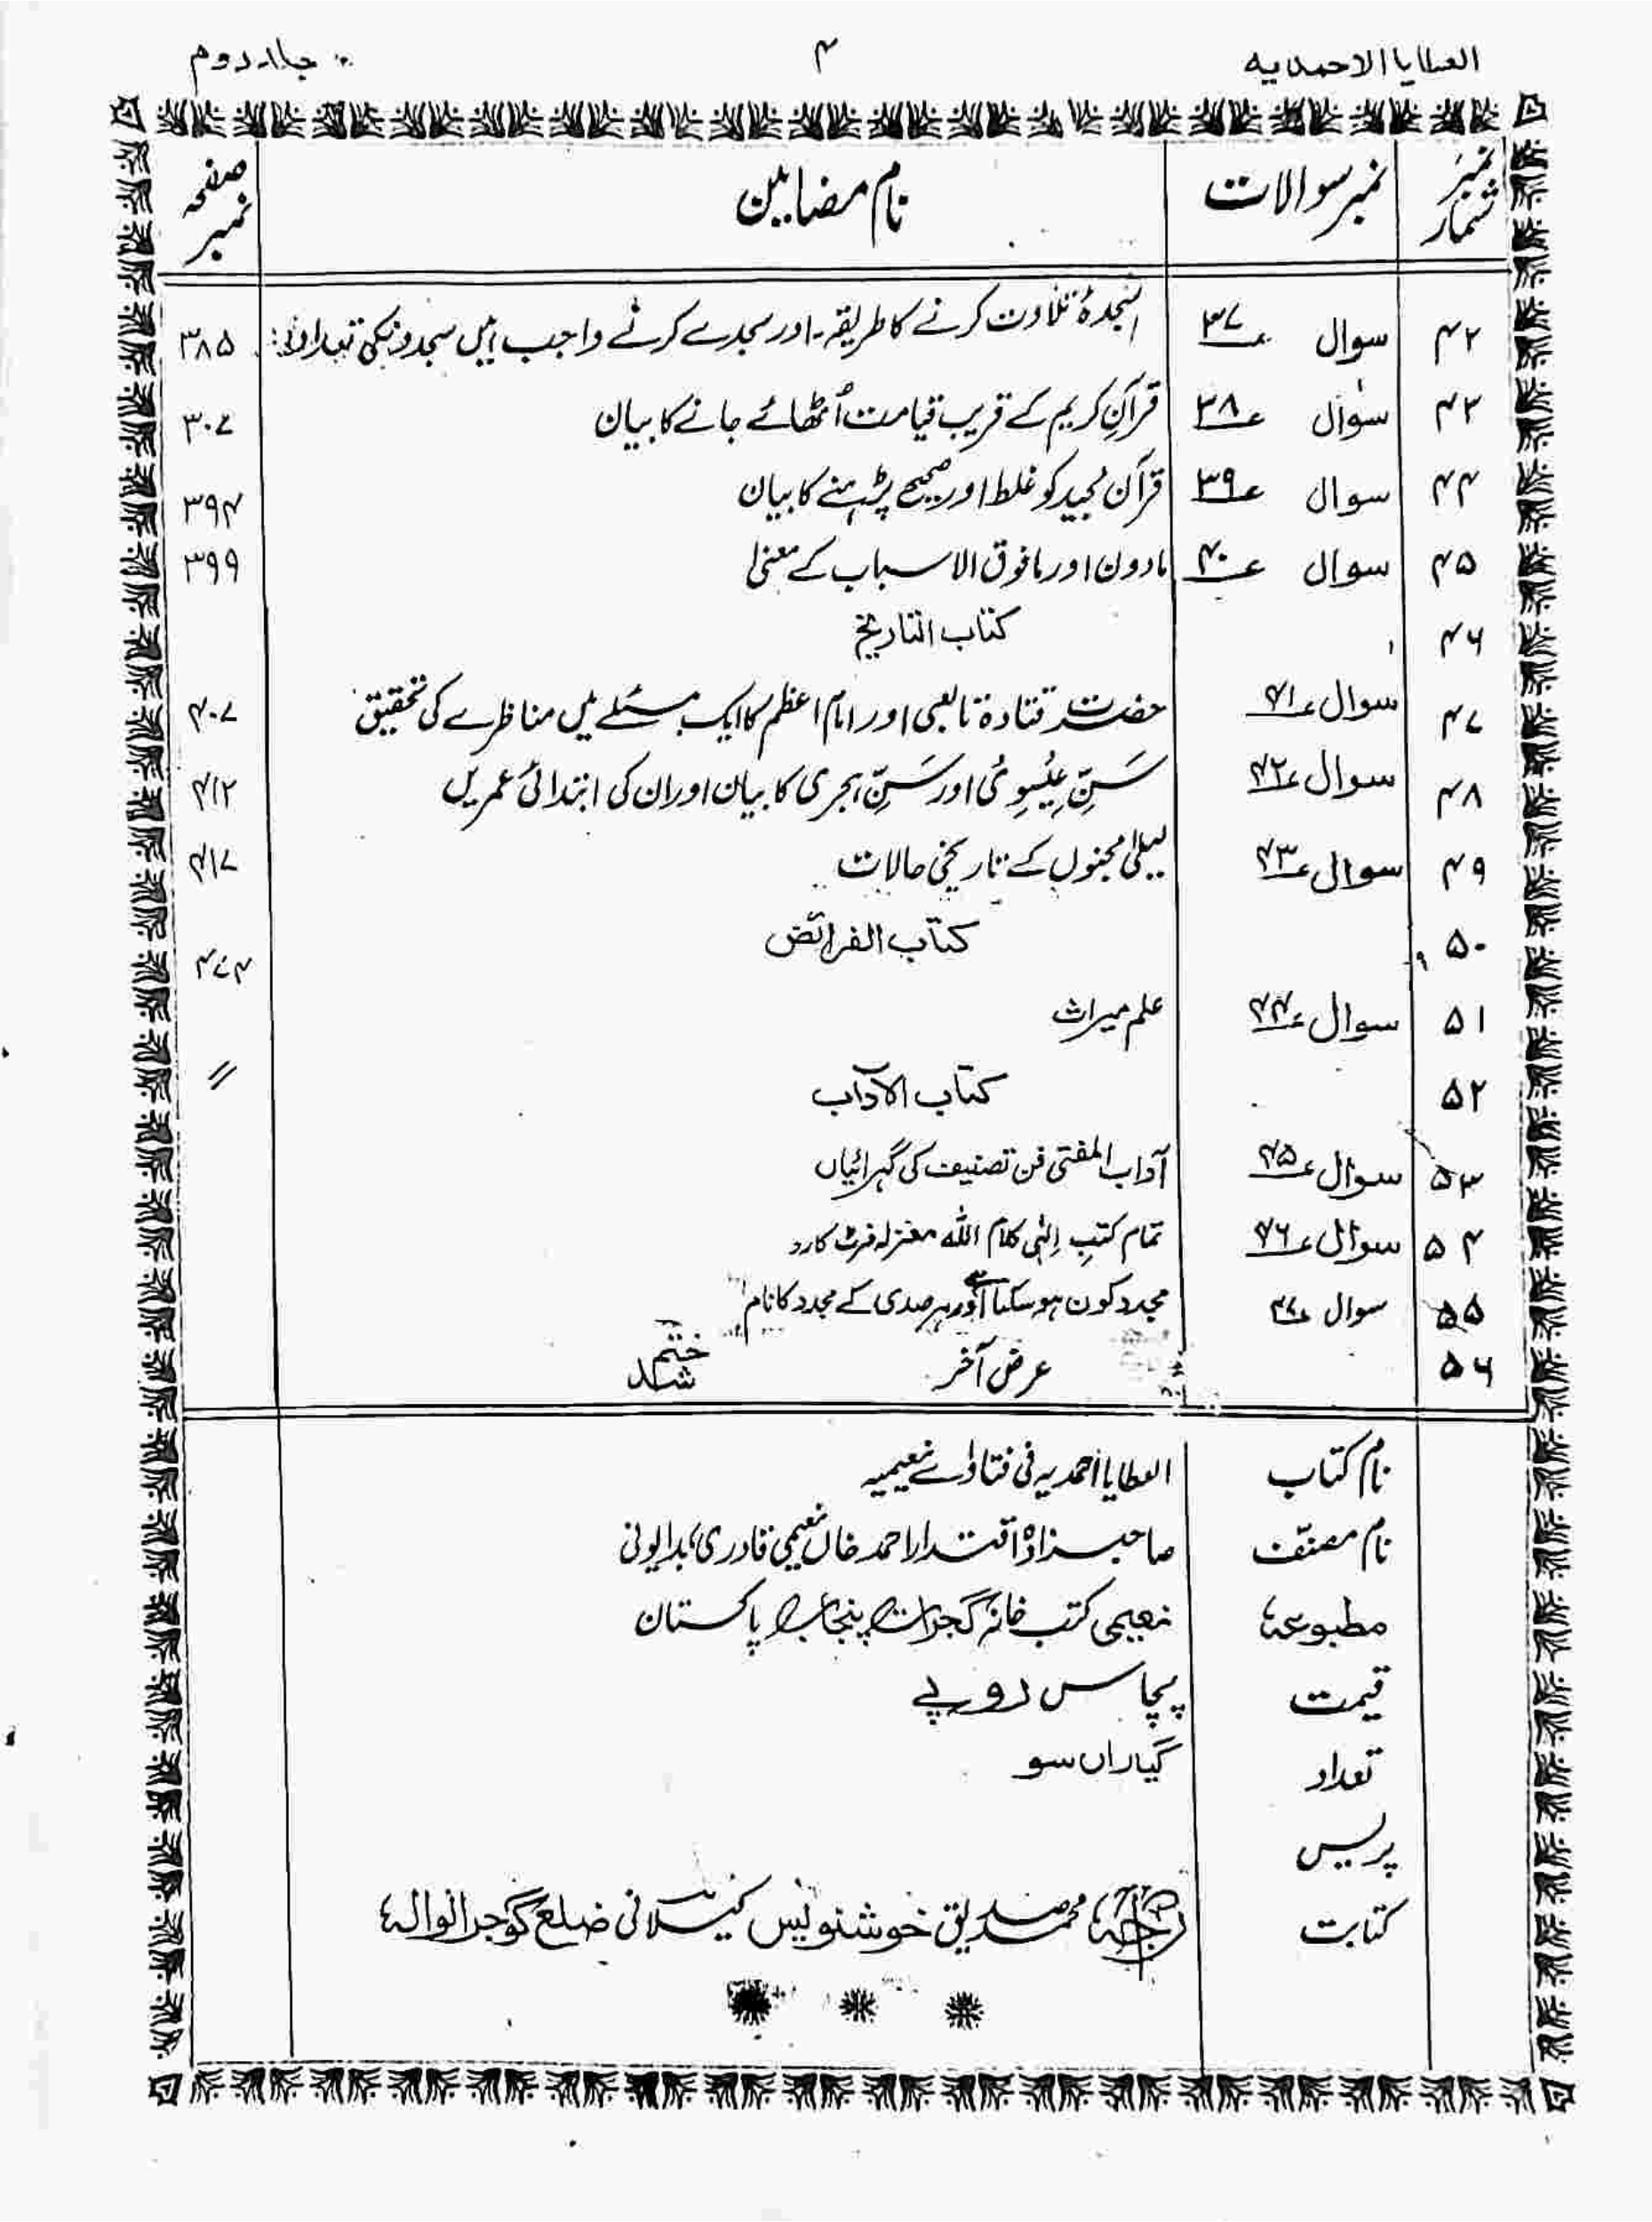 العطایا الاحمدیه ۴ جلد دوم
نمبر شمار نمبر سوالات نام مضابین صفحہ نمبر
۴۲ سوال ؏۳۷ سجدۂ تلاوت کرنے کا طریقہ۔ اور سجدے کرنے واجب ہیں سجدونکی تعداد ۳۸۵
۴۳ سوال ؏۳۸ قرآنِ کریم کے قریب قیامت اُٹھائے جانے کا بیان ۳۰۷
۴۴ سوال ؏۳۹ قرآن مجید کو غلط اور صحیح پڑہنے کا بیان ۳۹۴
۴۵ سوال ؏۴۰ مادون اور مافوق الاسباب کے معنیٰ ۳۹۹
۴۶ کتاب التاریخ
۴۷ سوال ؏۴۱ حضرت قتادۃ تابعی اور امام اعظم کا ایک مسئلے میں مناظرے کی تحقیق ۴۰۷
۴۸ سوال ؏۴۲ سَنِّ عِیْسِوِیُ اور سَنِّ ہجری کا بیان اور ان کی ابتدائی عمریں ۴۱۲
۴۹ سوال ؏۴۳ لیلیٰ مجنوں کے تاریخی حالات ۴۱۷
۵۰ کتاب الفرائض ۴۷۴
۵۱ سوال ؏۴۴ علم میراث
۵۲ کتاب الآداب 〃
۵۳ سوال ؏۴۵ آداب المفتی فن تصنیف کی گہرائیاں
۵۴ سوال ؏۴۶ تمام کتبِ اِلٰہی کلام اللہ معتزلہ فرقہ کا رد
۵۵ سوال ؏۴۷ مجدد کون ہو سکتا ہے اور ہر صدی کے مجدد کا نام
۵۶ عرض آخر ختم شد
نام کتاب العطایا احمدیہ فی فتاوٰے نعیمیہ
نام مصنّف صاحبزادہ اقتدار احمد خاں نعیمی قادری بدایونی
مطبوعہ نعیمی کتب خانہ گجرات پنجاب پاکستان
قیمت پچاس روپے
تعداد گیاراں سو
پریس
کتابت راجہ محمد صدیق خوشنویس کیلانی ضلع گوجرانوالہ